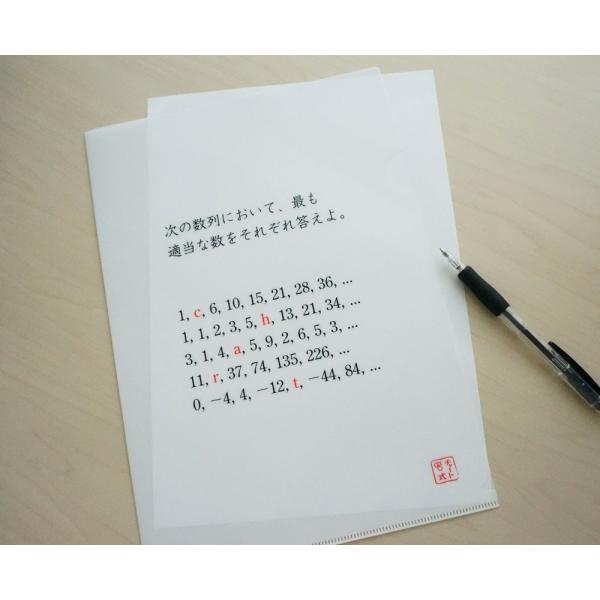 次の数列において、最も
適当な数をそれぞれ答えよ。
1, c, 6, 10, 15, 21, 28, 36, ...
1, 1, 2, 3, 5, h, 13, 21, 34, ...
3, 1, 4, a, 5, 9, 2, 6, 5, 3, ...
11, r, 37, 74, 135, 226, ...
0, −4, 4, −12, t, −44, 84, ...
チャート
式